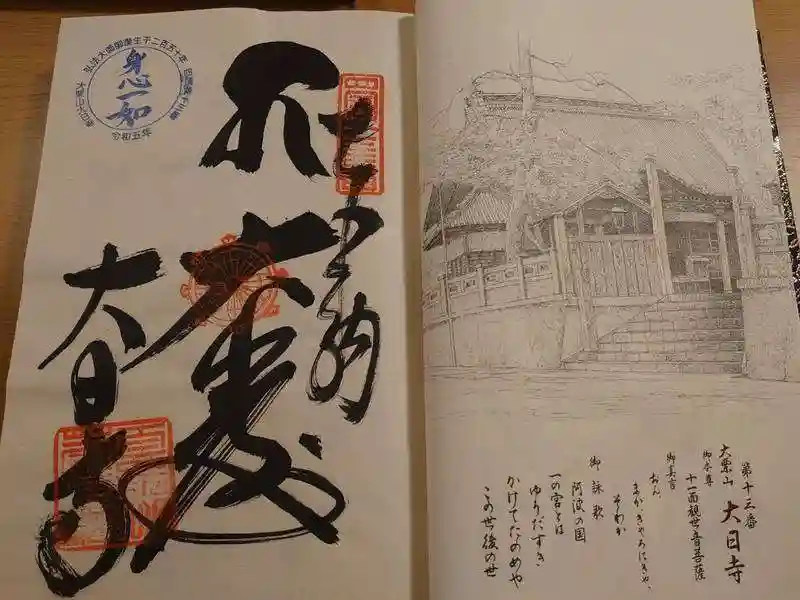 弘法大師御誕生千二百五十年
身心一如
令和五年
奉納
大日寺
第十三番
大栗山 大日寺
御本尊
十一面観世音菩薩
御真言
おん、
まか、きゃろにきゃ、
そわか
御詠歌
阿波の国
一の宮とは
ゆうだすき
かけてたのめや
この世後の世